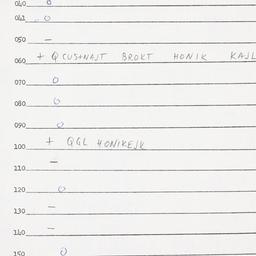 040 0
041 0
050 –
060 + QCUSTNAJT BROKT HONIK KAJL
070 0
080 0
090 0
100 + QGL HONIKEJK
110 –
120 0
130 –
140 –
150 0